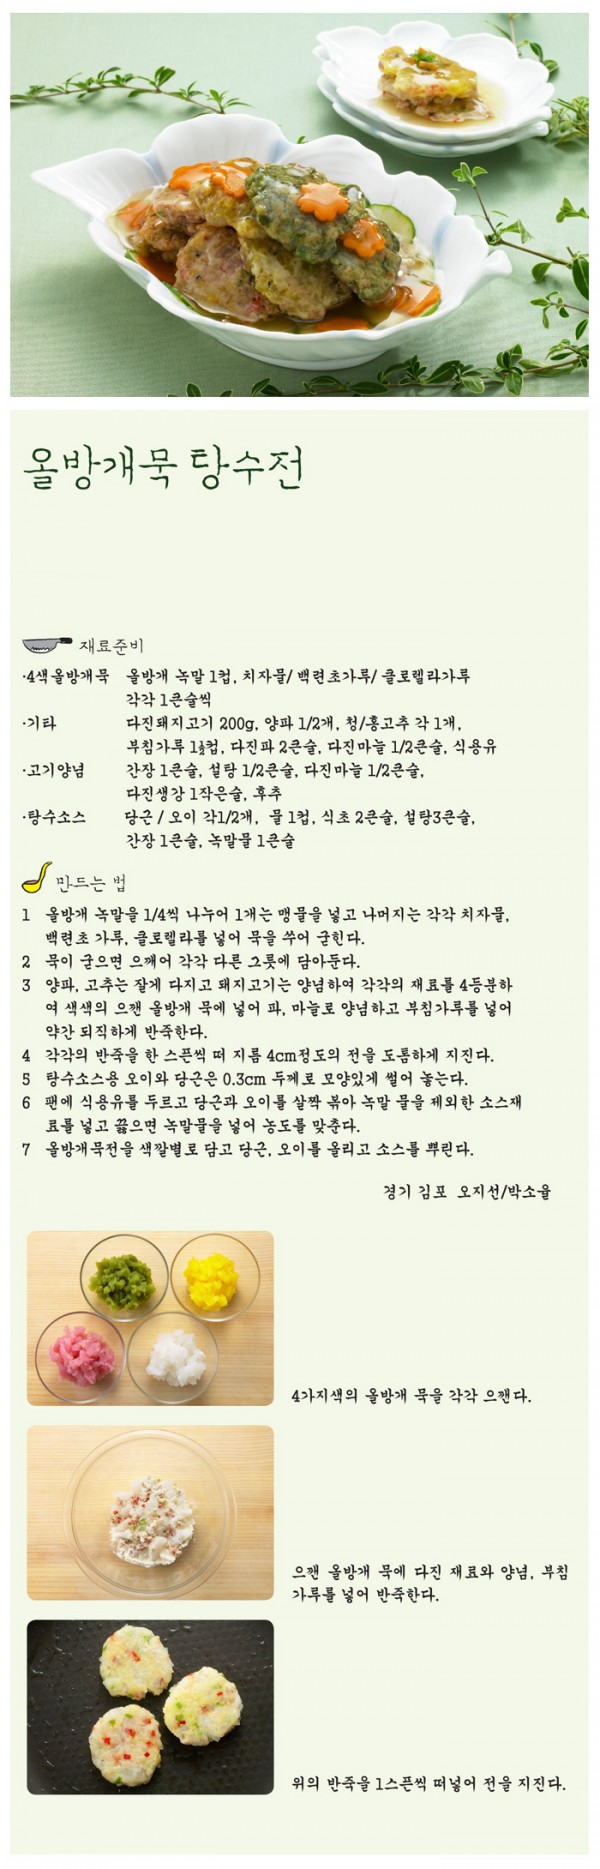 올방개묵 탕수전
재료준비
·4색올방개묵 올방개 녹말 1컵, 치자물/ 백련초가루/ 클로렐라가루
각각 1큰술씩
·기타 다진돼지고기 200g, 양파 1/2개, 청/홍고추 각 1개,
부침가루 컵, 다진파 2큰술, 다진마늘 1/2큰술, 식용유
·고기양념 간장 1큰술, 설탕 1/2큰술, 다진마늘 1/2큰술,
다진생강 1작은술, 후추
·탕수소스 당근 / 오이 각1/2개, 물 1컵, 식초 2큰술, 설탕3큰술,
간장 1큰술, 녹말물 1큰술
만드는 법
1 올방개 녹말을 1/4씩 나누어 1개는 맹물을 넣고 나머지는 각각 치자물,
백련초 가루, 클로렐라를 넣어 묵을 쑤어 굳힌다.
2 묵이 굳으면 으깨어 각각 다른 그릇에 담아둔다.
3 양파, 고추는 잘게 다지고 돼지고기는 양념하여 각각의 재료를 4등분하
여 색색의 으깬 올방개 묵에 넣어 파, 마늘로 양념하고 부침가루를 넣어
약간 되직하게 반죽한다.
4 각각의 반죽을 한 스픈씩 떠 지름 4cm정도의 전을 도톰하게 지진다.
5 탕수소스용 오이와 당근은 0.3cm 두께로 모양있게 썰어 놓는다.
6 팬에 식용유를 두르고 당근과 오이를 살짝 볶아 녹말 물을 제외한 소스재
료를 넣고 끓으면 녹말물을 넣어 농도를 맞춘다.
7 올방개묵전을 색깔별로 담고 당근, 오이를 올리고 소스를 뿌린다.
경기 김포 오지선/박소율
4가지색의 올방개 묵을 각각 으깬다.
으깬 올방개 묵에 다진 재료와 양념, 부침
가루를 넣어 반죽한다.
위의 반죽을 1스픈씩 떠넣어 전을 지진다.